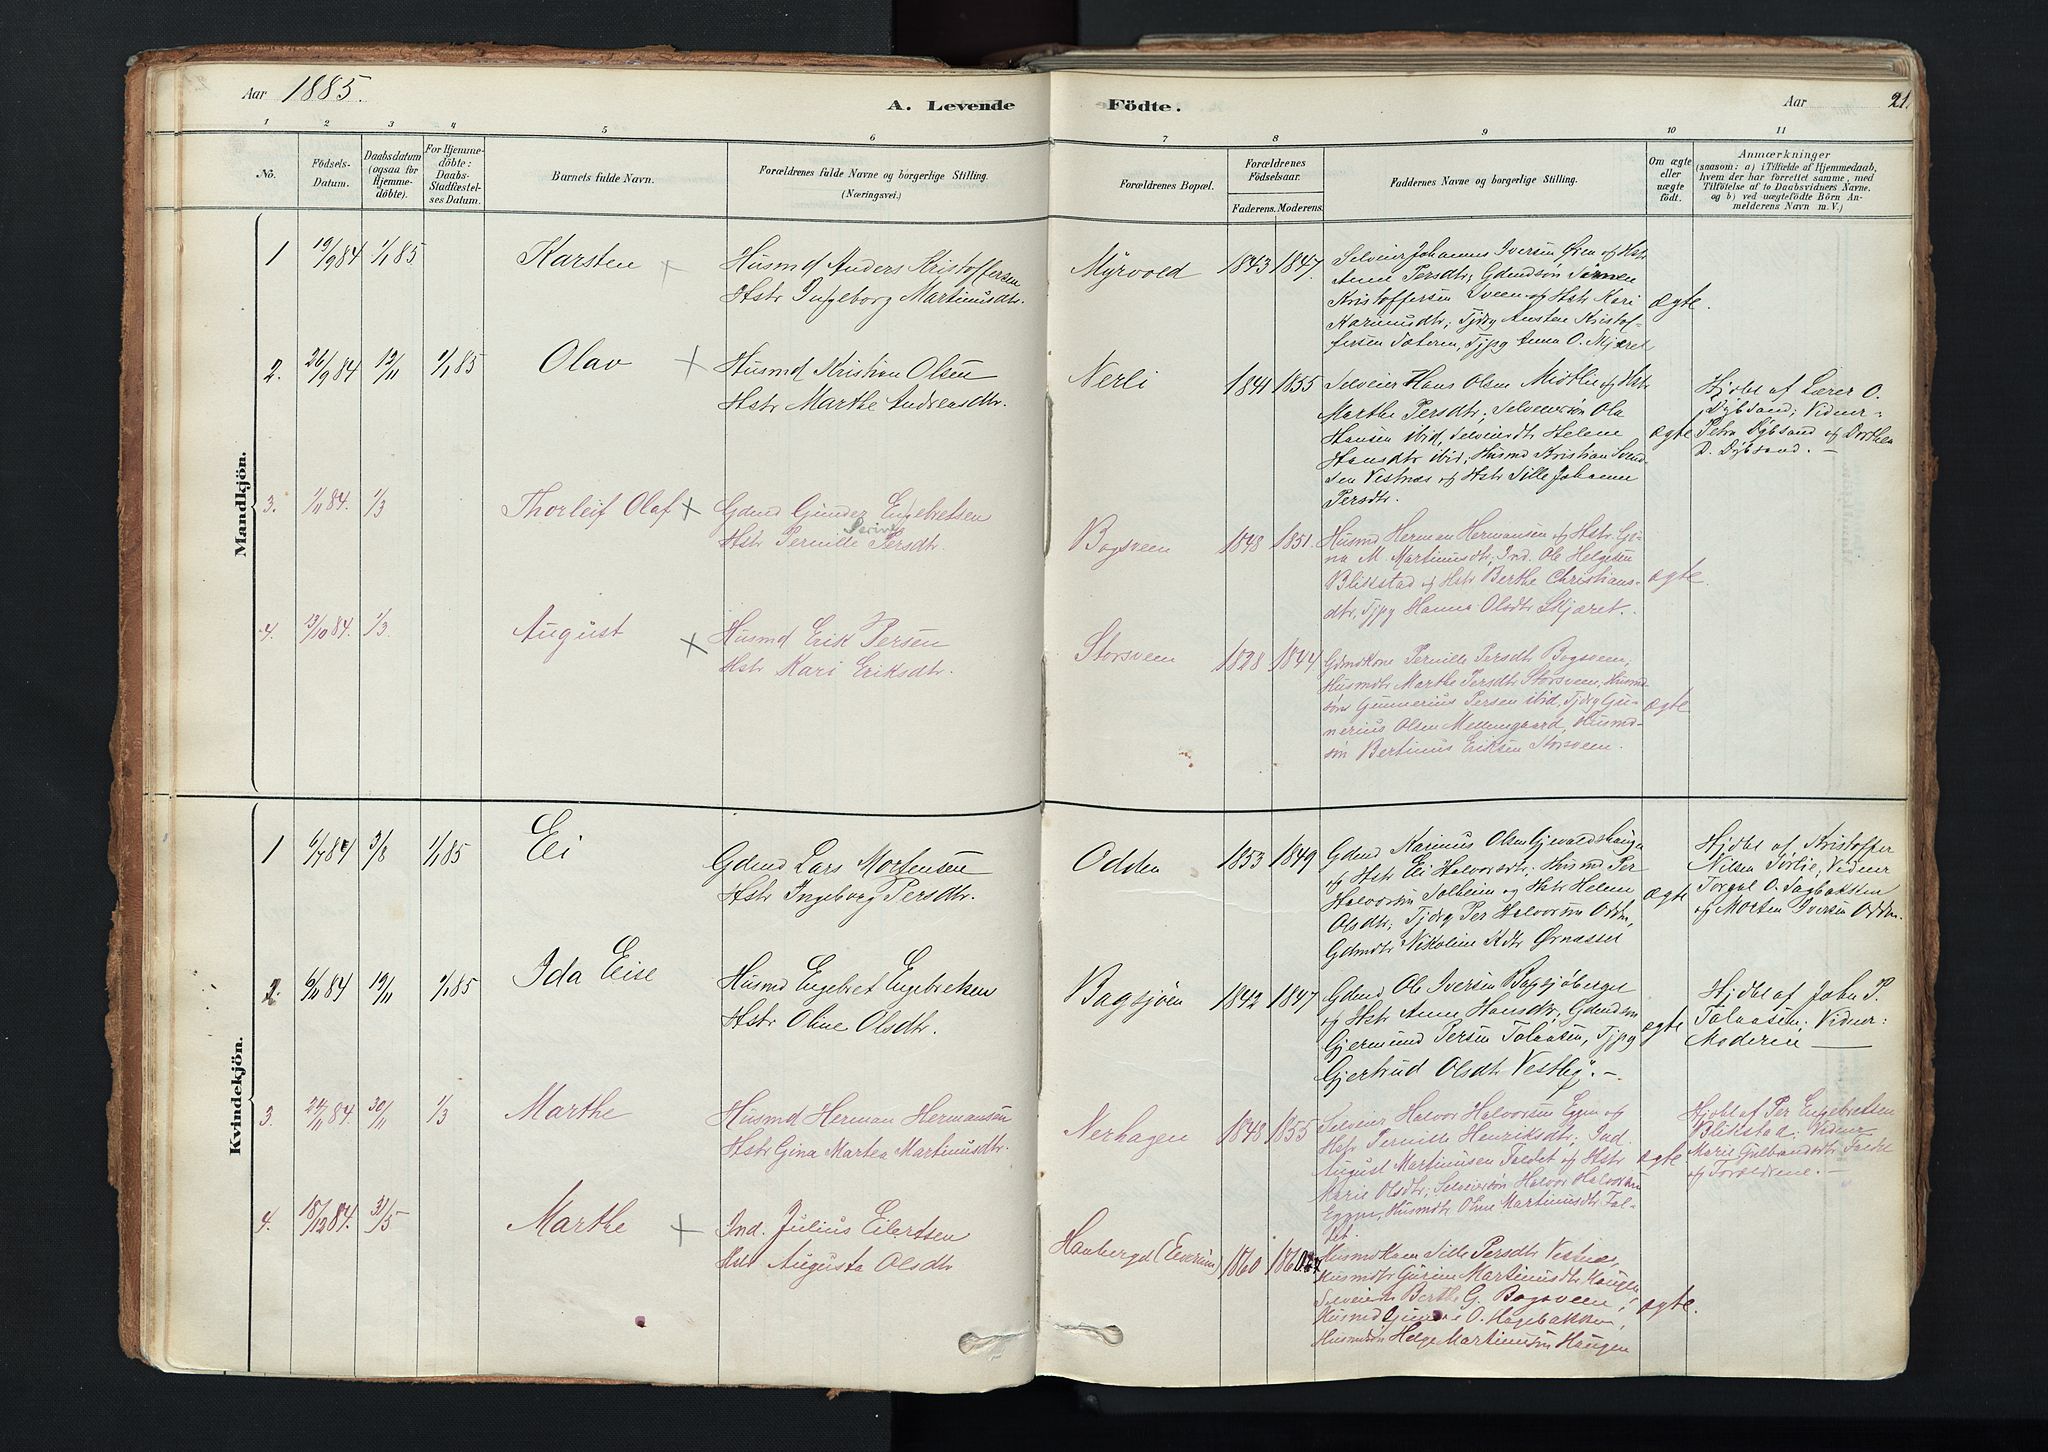 Aar 1885.
A. Levende
Födte.
Aar
21.
1 2 3 4 5 6 7 8 9 10 11
No.
Födsels-
Datum.
Daabsdatum
(ogsaa for
Hjemme-
döbte).
For Hjemme-
döbte:
Daabs-
Stadfæstel-
ses Datum.
Barnets fulde Navn.
Forældrenes fulde Navne og borgerlige Stilling.
(Næringsvei.)
Forældrenes Bopæl.
Forældrenes
Födselsaar.
Faderens. Moderens.
Faddernes Navne og borgerlige Stilling.
Om ægte
eller
uægte
födt.
Anmærkninger
(saasom: a) i Tilfælde af Hjemmedaab,
hvem der har forrettet samme, med
Tilföielse af to Daabsvidners Navne.
og b) ved uægtefödte Börn An-
melderens Navn m. V.)
Mandkjön.
1 19/9 84 1/1 85 Karsten
Husmd Anders Kristoffersen
Hstr Ingeborg Martinusdtr.
Myrvold 1843 1847.
Selveier Johannes Iversen Øren og Hstr
Anne Persdtr; Gdmdsøn Simen
Kristoffersen Sveen og Hstr Kari
Karinusdtr; Tjdrg Austen Kristof-
fersen Sæteren, Tjpg Anna O. Skjæret
ægte.
2. 26/9 84 12/11 1/1 85 Olav
Husmd Kristian Olsen
Hstr Marthe Andreasdtr.
Nerli 1841 1855
Selveier Hans Olsen Midtlie og Hstr
Marthe Persdtr; Selveiersøn Ola
Hansen ibid, Selveierdtr Helene
Hansdtr ibid; Husmd Kristian Svend-
sen Vestnæs og Hstr Sille Johanne
Persdtr.
ægte
Hjdbt af Lærer O.
Dybsand; Vidner:
Petra Dybsand og Dorthea
D. Dybsand. –
3. 1/11 84. 1/3 Thorleif Olaf
Gdmd Gunder Engebretsen
Hstr Pernille Persdtr.
Bogsveen 1848 1851.
Husmd Herman Hermansen og Hstr Gi-
na M. Martinusdtr; Ind. Ole Helgesen
Blikstad og Hstr Berthe Christians-
dtr, Tjpg Hanna Olsdtr Skjæret.
ægte.
4. 13/10 84. 1/3 August
Husmd Erik Persen
Hstr Kari Eriksdtr.
Storsveen 1828 1844
Gdmdkone Pernille Persdtr Bogsveen,
Husmdtr Marthe Persdtr Storsveen, Husmd-
søn Gunnerius Persen ibid, Tjdrg Gu-
nerius Olsen Mellemgaard, Husmd-
søn Bertinus Eriksen Storsveen.
ægte
Kvindekjön.
1 6/7 84 3/8 1/1 85 Eli
Gdmd Lars Mortensen
Hstr Ingeborg Persdtr.
Odden 1853 1849
Gdmd Karinus Olsen Gjevaldshaugen
og Hstr Eli Halvorsdtr; Husmd Per
Halvorsen Solheim og Hstr Helene
Olsdtr; Tjdrg Per Halvorsen Odden,
Gdmdtr Nikoline Kdtr Ørnæsset
ægte
Hjdbt af Kristoffer
Nilsen Sørlie, Vidner
Torgal O. Sagbakken
og Morten Iversen Odden.
2. 6/11 84 19/11 1/1 85 Ida Elise
Husmd Engebret Engebretsen
Hstr Oline Olsdtr.
Bagsjøen 1842 1847
Gdmd Ole Iversen Bagsjøberget
og Hstr Anne Hansdtr, Gdmdsøn
Gjermund Persen Tolaasen, Tjpg
Gjertrud Olsdtr Vestby. –
ægte
Hjdbt af John P.
Tolaasen; Vidner:
Moderen
3. 24/11 84. 30/11 1/3 Marthe
Husmd Herman Hermansen
Hstr Gina Martea Martinusdtr.
Nerhagen 1848 1855
Selveier Halvor Halvorsen Eggen og
Hstr Pernille Henriksdtr; Ind.
August Martinusen Faldet og Hstr
Marie Olsdtr; Selveiersøn Halvor Halvorsen
Eggen, Husmdtr Oline Martinusdtr Fal-
det.
ægte
Hjdbt af Per Engebretsen
Blikstad; Vidner
Marie Gulbrandsdtr Faldet
og Forældrene. –
4. 18/12 84. 31/5 Marthe
Ind. Julius Eilertsen
Hstr Augusta Olsdtr
Hanberget (Elverum) 1860 1860
Husmdkone Sille Persdtr Vestnæs,
Husmdtr Gurine Martinusdtr Haugen
Selveierdtr Berthe G. Bogsveen;
Husmd O. Hagebakken,
Husmdsøn Helge Martinusen Haugen
ægte.